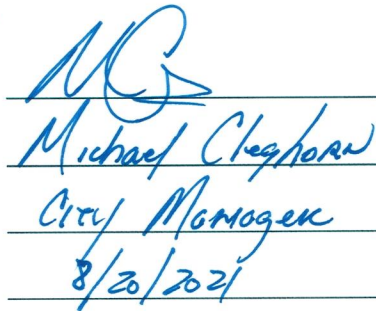 Michael Cleghorn
City Manager
8/20/2021